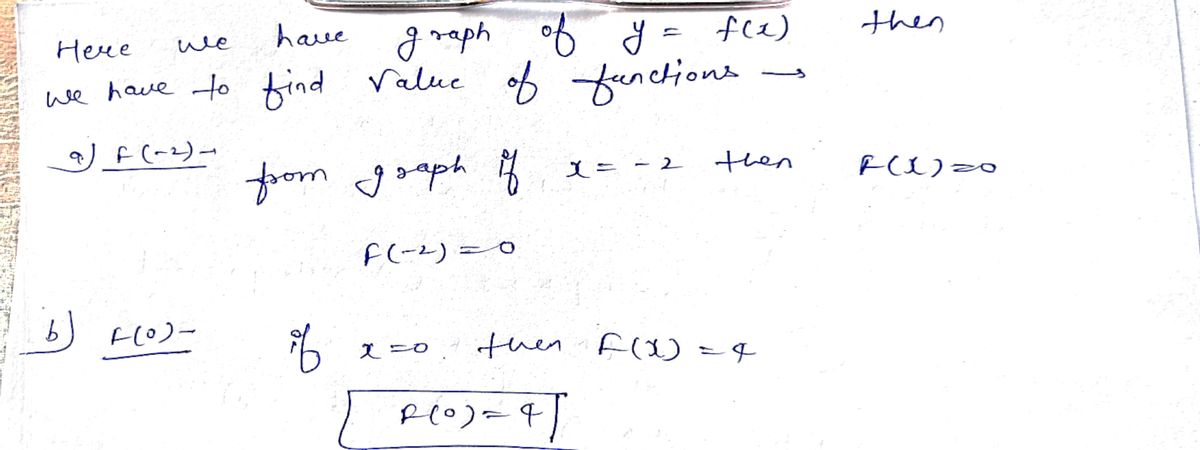 Here we have graph of y = f(x) then
we have to find value of functions →
a) f(-2) →
from graph if x = -2 then f(x)=0
f(-2) = 0
b) f(0) -
if x=0. then f(x) = 4
f(0) = 4